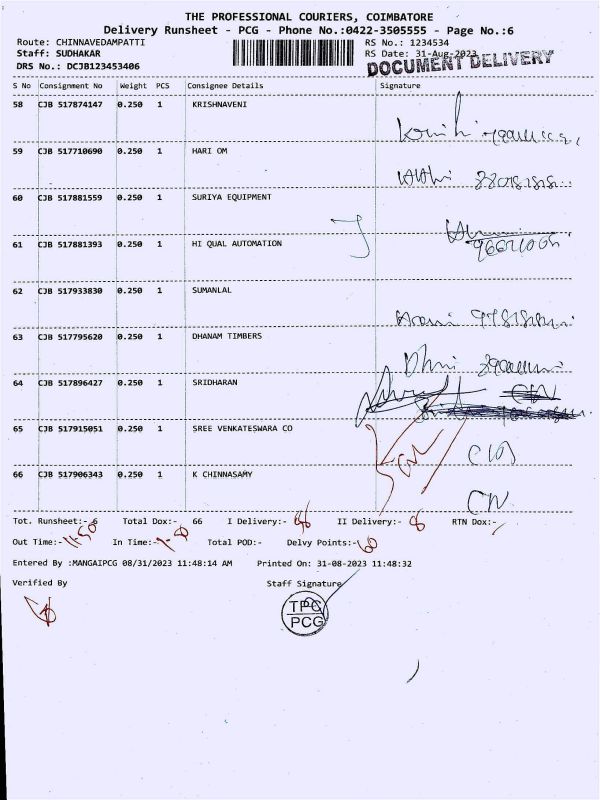 THE PROFESSIONAL COURIERS, COIMBATORE
Delivery Runsheet - PCG - Phone No.:0422-3505555 - Page No.:6
Route: CHINNAVEDAMPATTI RS No.: 1234534
Staff: SUDHAKAR RS Date: 31-Aug-2023
DRS No.: DCJB123453406 DOCUMENT DELIVERY
S No Consignment No Weight PCS Consignee Details Signature
58 CJB 517874147 0.250 1 KRISHNAVENI
59 CJB 517710690 0.250 1 HARI OM
60 CJB 517881559 0.250 1 SURIYA EQUIPMENT
61 CJB 517881393 0.250 1 HI QUAL AUTOMATION
62 CJB 517933830 0.250 1 SUMANLAL
63 CJB 517795620 0.250 1 DHANAM TIMBERS
64 CJB 517896427 0.250 1 SRIDHARAN
65 CJB 517915051 0.250 1 SREE VENKATESWARA CO
66 CJB 517906343 0.250 1 K CHINNASAMY
CN
Tot. Runsheet:- 6 Total Dox:- 66 I Delivery:- II Delivery:- RTN Dox:-
Out Time:- 11-50 In Time:- Total POD:- Delvy Points:-
Entered By :MANGAIPCG 08/31/2023 11:48:14 AM Printed On: 31-08-2023 11:48:32
Verified By Staff Signature
TPC
PCG